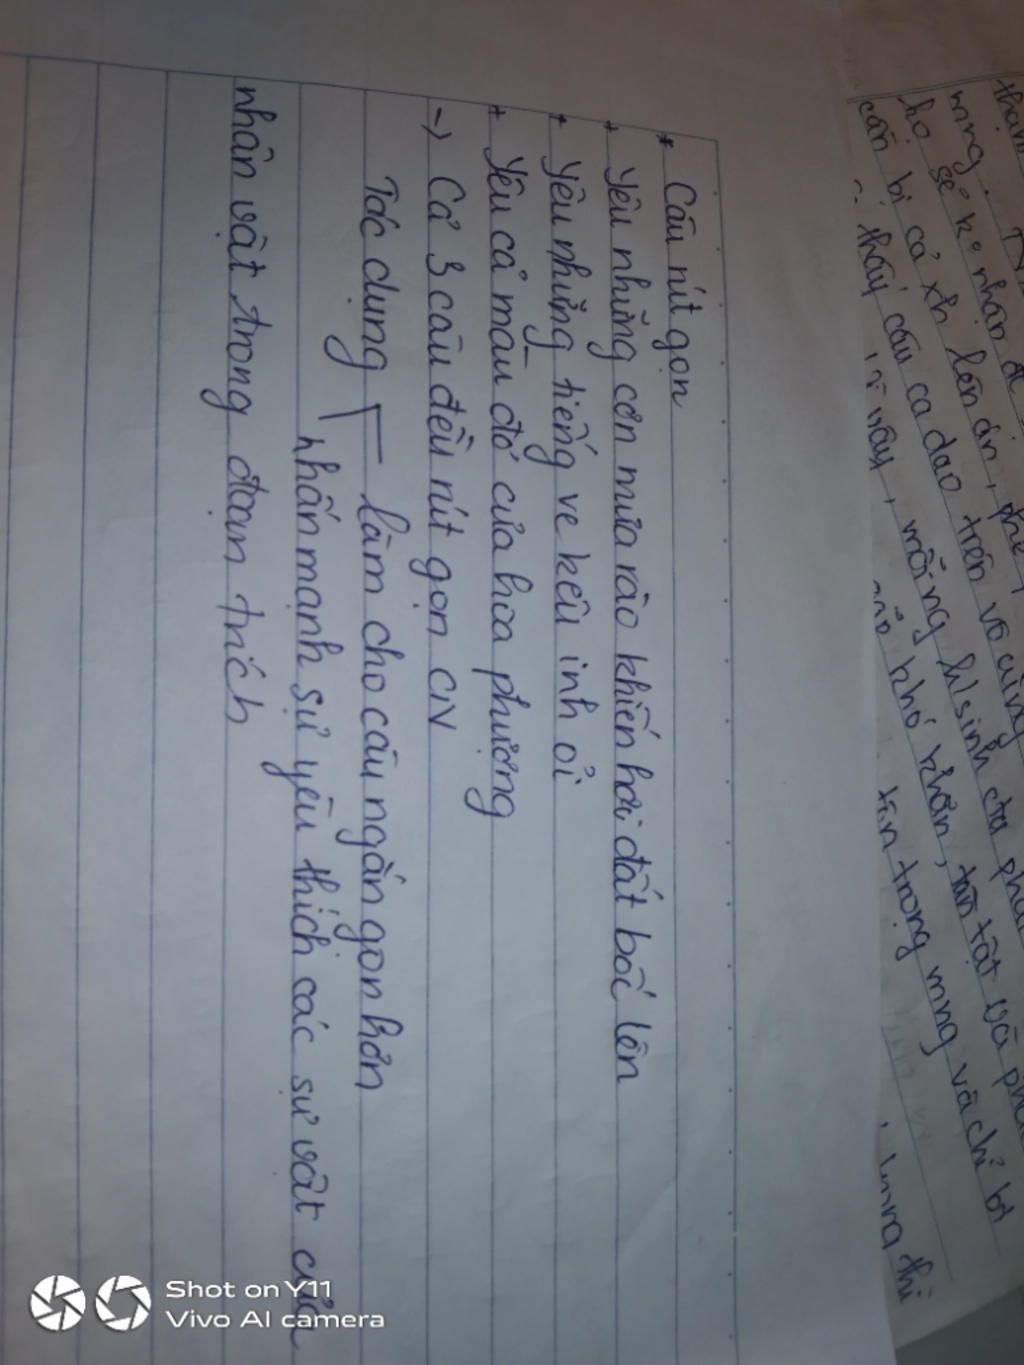 * Câu rút gọn
+ Yêu những cơn mưa rào khiến hơi đất bốc lên
+ Yêu những tiếng ve kêu inh ỏi
+ Yêu cả màu đỏ của hoa phượng
→ Cả 3 câu đều rút gọn CN
Tác dụng làm cho câu ngắn gọn hơn
nhấn mạnh sự yêu thích các sự vật của
nhân vật trong đoạn trích
mng
họ sẽ k° nhận đc
cần bị cả xh lên án
thấy câu ca dao trên vô cùng
vì vậy, mỗi ng h/sinh của
gặp khó khăn, tàn tật và
tôn trọng mng và chỉ
thì
Shot on Y11
Vivo AI camera